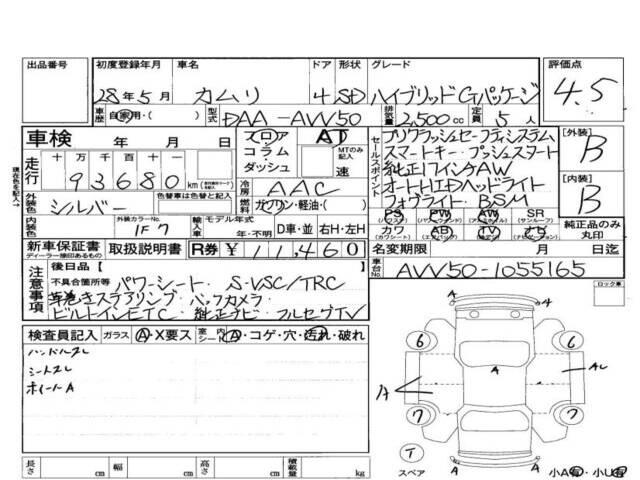 出品番号 初度登録年月 車名 ドア 形状 グレード 評価点
28年5月 カムリ 4 SD ハイブリッド Gパッケージ 4.5
車歴 自家用・( ) 型式 DAA-AVV50 排気量 2,500cc 定員 5人
車検 年 月 日 フロア・コラム・ダッシュ AT MTのみ記入 速
走行 十万 万 千 百 十
93680 km
冷房 AAC
外装色 シルバー 燃料 ガソリン・軽油・( )
内装色 外装カラーNo. 1F7 輸入車 モデル年式 年・不明 D車・並 右H・左H
新車保証書 取扱説明書 R券 ¥11,460
ディーラー捺印あるもの
セールスポイント
プリクラッシュセーフティシステム
スマートキー・プッシュスタート
純正17インチAW
オートHIDヘッドライト
フォグライト・BSM
PS PW AW SR
(パワーステ) (パワーウィンド) (アルミホイール) (サンルーフ)
カワ AB TV ナビ
(カワシート) (エアバッグ) (テレビ) (ナビゲーション)
[外装] B
[内装] B
純正品のみ丸印
名変期限 月 日迄
車台No. AVV50-1055165
注意事項
後日品( )
不具合箇所等 パワーシート・S-VSC/TRC
革巻きステアリング・バックカメラ
ビルトインETC・純正ナビ・フルセグTV
検査員記入 ガラス A・X要ス 室内シート A・コゲ・穴・汚れ・破れ
ハンドルスレ
シートスレ
ホイールA
ロック車
A A
6 6
A AL
7 7
T
スペア A A
小A有・小U有
長さ cm 幅 cm 高さ cm 積載量 kg